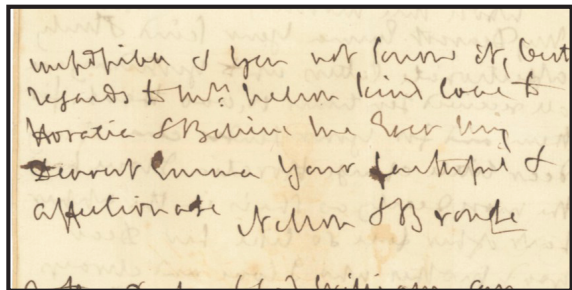 impossible & you not know it, best
regards to Mrs. Nelson kind love to
Horatia & Believe me Ever My
Dearest Emma Your faithful &
affectionate Nelson & Bronte
William